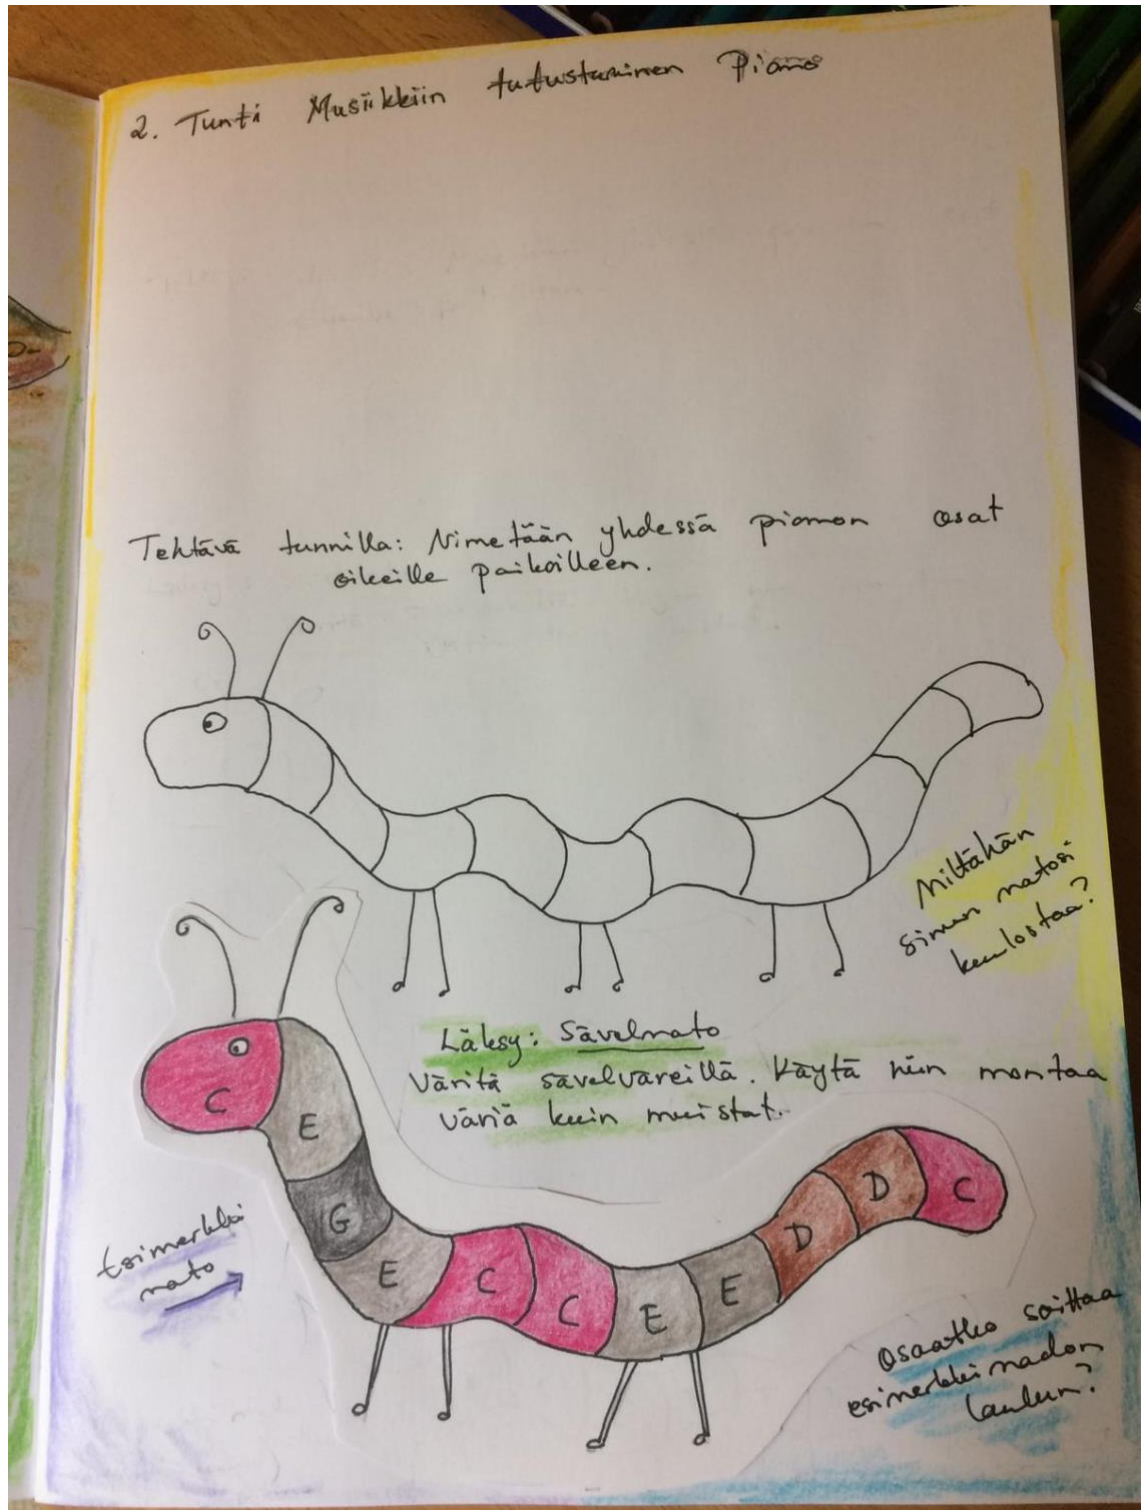 2. Tunti Musiikkiin tutustuminen Piano
Tehtävä tunnilla: Nimetään yhdessä pianon osat
oikeille paikoilleen.
Miltähän
sinun matosi
kuulostaa?
Läksy: Sävelmato
Väritä sävelväreillä. Käytä niin montaa
väriä kuin muistat.
C
E
G
E
C
C
E
E
D
D
C
Esimerkki
mato
Osaatko soittaa
esimerkkimadon
laulun?